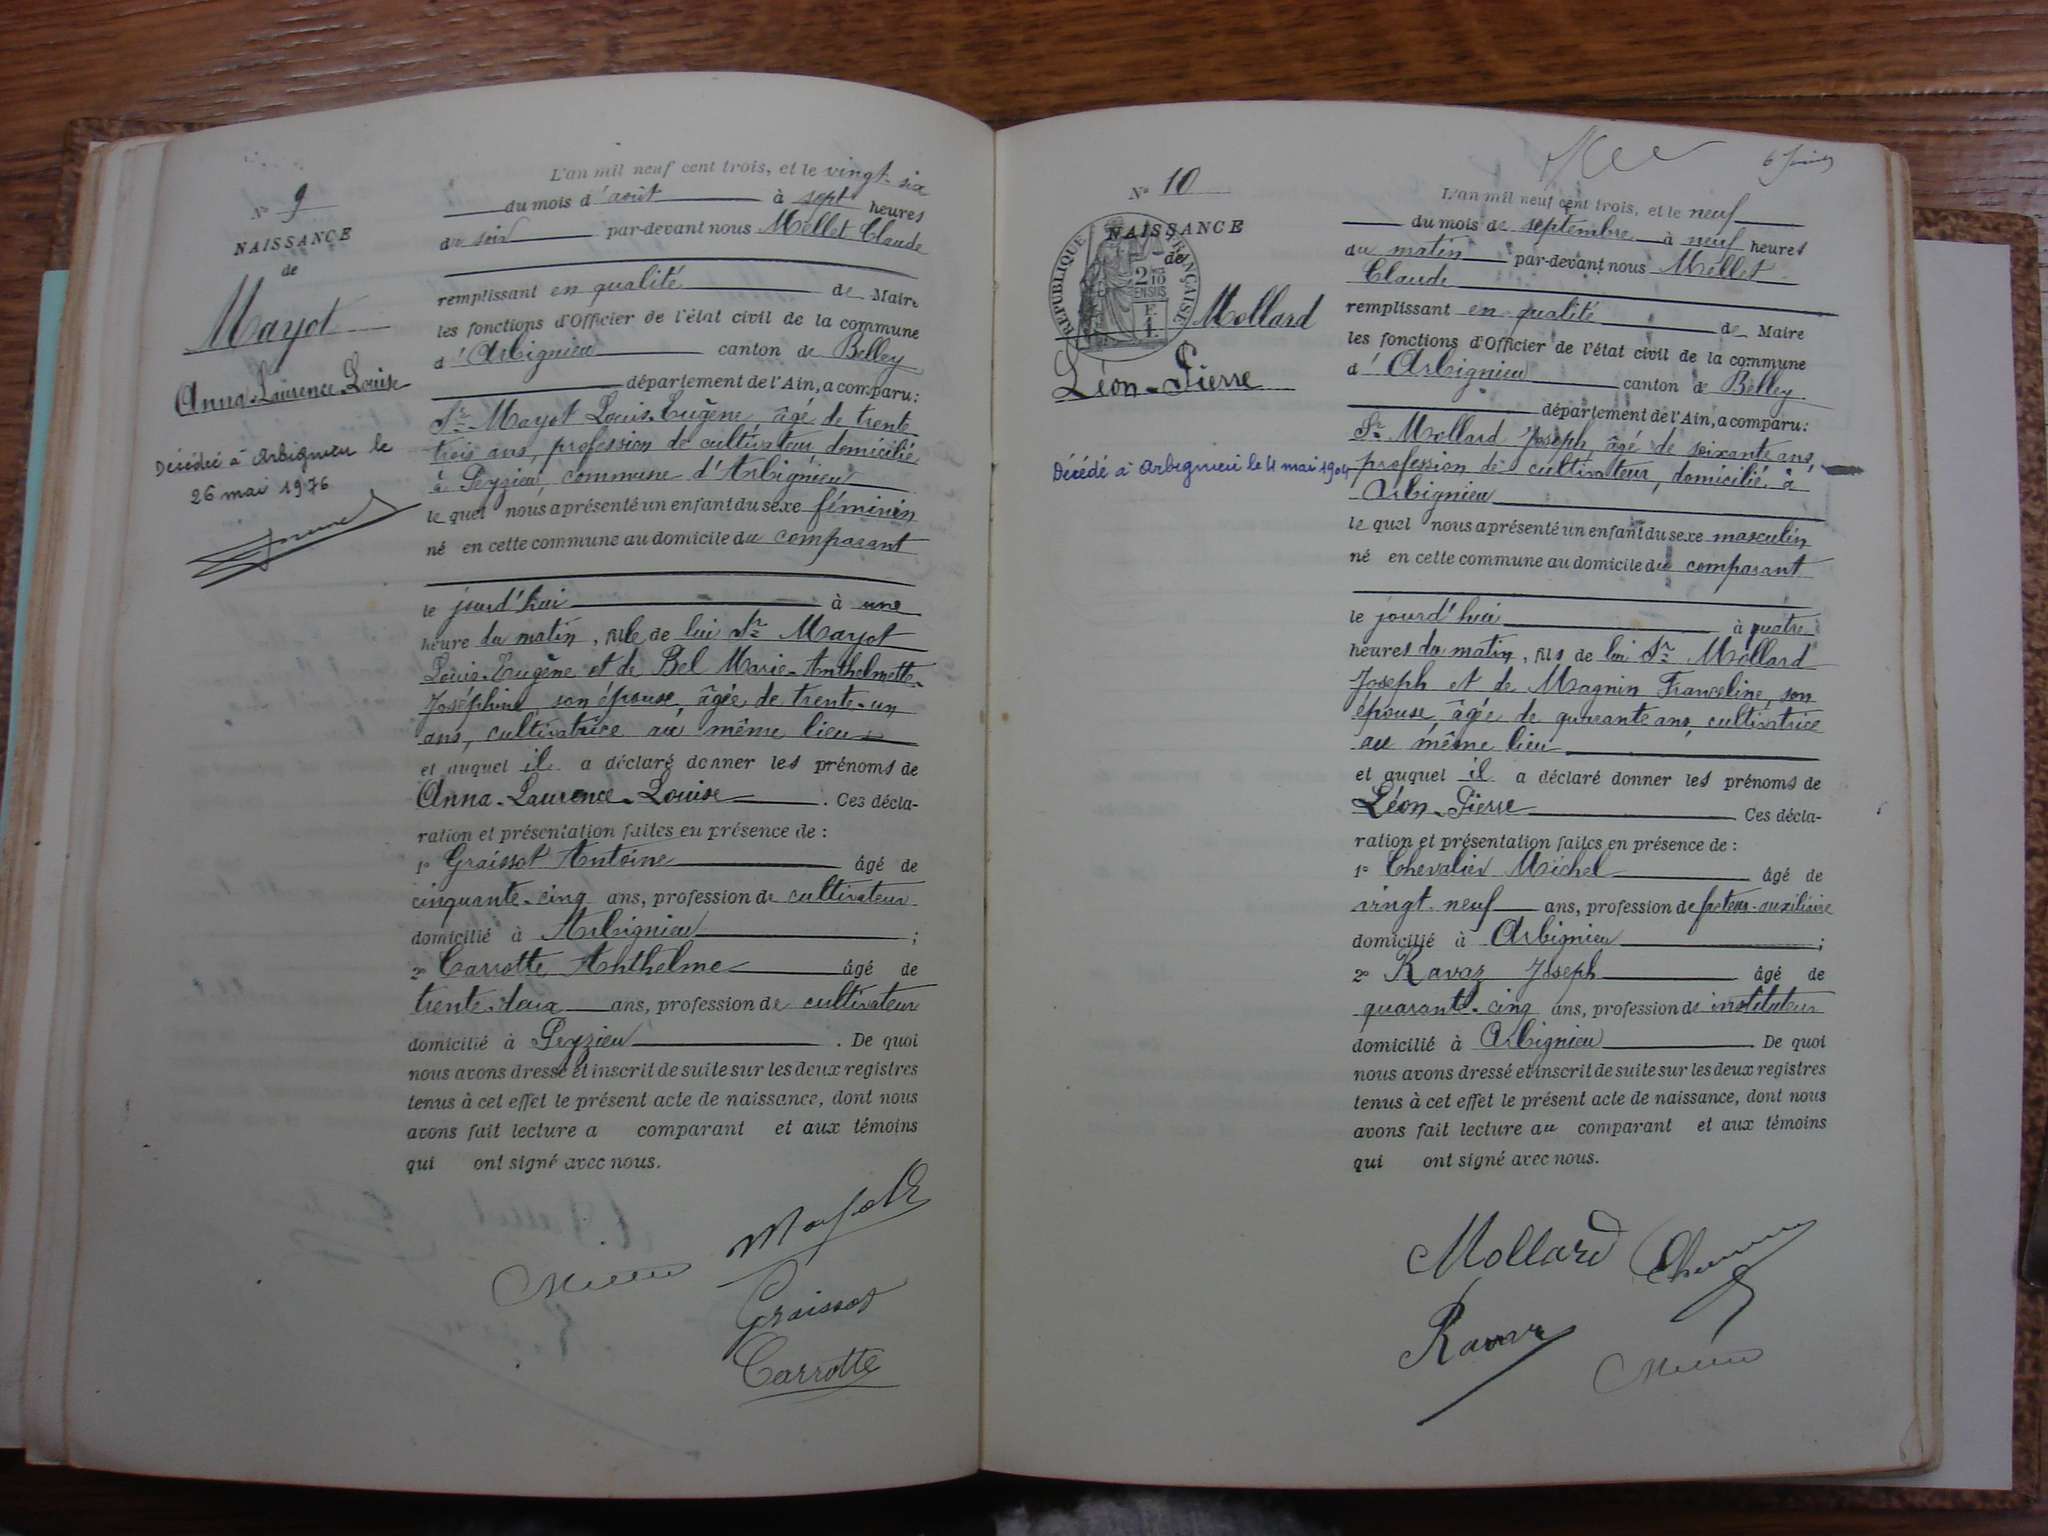 N° 9
NAISSANCE
de
Mayot
Anna-Laurence-Louise
Décédée à Arbignieu le
26 mai 1976
L'an mil neuf cent trois, et le vingt-six
du mois d'août à sept heures
du soir par-devant nous Mellet Claude
remplissant en qualité de Maire
les fonctions d'Officier de l'état civil de la commune
d'Arbignieu canton de Belley
département de l'Ain, a comparu:
Sr Mayot Louis-Eugène, âgé de trente
trois ans, profession de cultivateur, domicilié
à Peyzieu, commune d'Arbignieu
le quel nous a présenté un enfant du sexe féminin
né en cette commune au domicile du comparant
le jourd'hui à une
heure du matin, fille de lui Sr Mayot
Louis-Eugène et de Bel Marie-Anthelmette-
Joséphine, son épouse, âgée de trente-un
ans, cultivatrice au même lieu
et auquel il a déclaré donner les prénoms de
Anna-Laurence-Louise. Ces décla-
ration et présentation faites en présence de :
1° Graissot Antoine âgé de
cinquante-cinq ans, profession de cultivateur
domicilié à Arbignieu ;
2° Carrotte Anthelme âgé de
trente-deux ans, profession de cultivateur
domicilié à Peyzieu. De quoi
nous avons dressé et inscrit de suite sur les deux registres
tenus à cet effet le présent acte de naissance, dont nous
avons fait lecture a comparant et aux témoins
qui ont signé avec nous.
Mayot
Mellet
Graissot
Carrotte
N° 10
NAISSANCE
de
RÉPUBLIQUE FRANÇAISE
2/10
EN SUS
Mollard
Léon-Pierre
Décédé à Arbignieu le 4 mai 1904
6
L'an mil neuf cent trois, et le neuf
du mois de septembre à neuf heures
du matin par-devant nous Mellet
Claude
remplissant en qualité de Maire
les fonctions d'Officier de l'état civil de la commune
d'Arbignieu canton de Belley
département de l'Ain, a comparu:
Sr Mollard Joseph, âgé de soixante ans,
profession de cultivateur, domicilié à
Arbignieu
le quel nous a présenté un enfant du sexe masculin
né en cette commune au domicile du comparant
le jourd'hui à quatre
heures du matin, fils de lui Sr Mollard
Joseph et de Magnin Franceline, son
épouse, âgée de quarante ans, cultivatrice
au même lieu
et auquel il a déclaré donner les prénoms de
Léon-Pierre Ces décla-
ration et présentation faites en présence de :
1° Chevalier Michel âgé de
vingt-neuf ans, profession de facteur-auxiliaire
domicilié à Arbignieu ;
2° Ravaz Joseph âgé de
quarante-cinq ans, profession de instituteur
domicilié à Arbignieu. De quoi
nous avons dressé et inscrit de suite sur les deux registres
tenus à cet effet le présent acte de naissance, dont nous
avons fait lecture au comparant et aux témoins
qui ont signé avec nous.
Mollard
Ravaz
Mellet